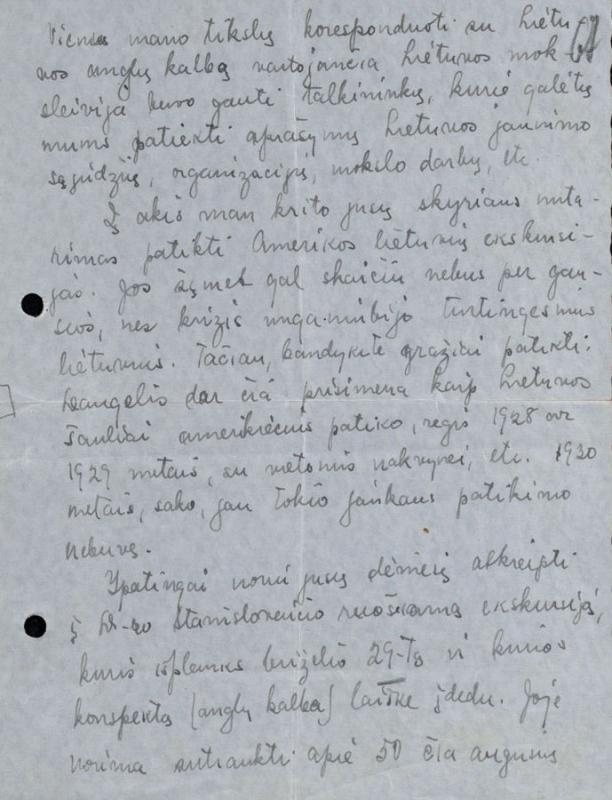 Vienas mano tikslų koresponduoti su Lietu-
vos anglų kalbą vartojančia Lietuvos mok-
sleivija buvo gauti talkininkų, kurie galėtų
mums patiekti aprašymų Lietuvos jaunimo
sąjūdžių, organizacijų, mokslo darbų, etc.
Į akis man krito jūsų skyriaus nuta-
rimas patikti Amerikos lietuvių ekskursi-
jas. Jos šįmet gal skaičiu nebus per gau-
sios, nes krizis unga-nubijo turtingesnius
lietuvius. Tačiau, bandykite gražiai patikti.
daugelis dar čia prisimena kaip Lietuvos
šauliai amerikiečius patiko, regis 1928 ar
1929 metais, su vietomis nakvynei, etc. 1930
metais, sako, jau tokio jaukaus patikimo
nebuvę.
Ypatingai noriu jūsų dėmesį atkreipti
į Dr-ro Stanislovaičio ruošiamą ekskursiją,
kuris išplauks birželio 29-tą ir kurios
konspektą (anglų kalba) laiške įdedu. Joje
norima sutraukti apie 50 čia augusių